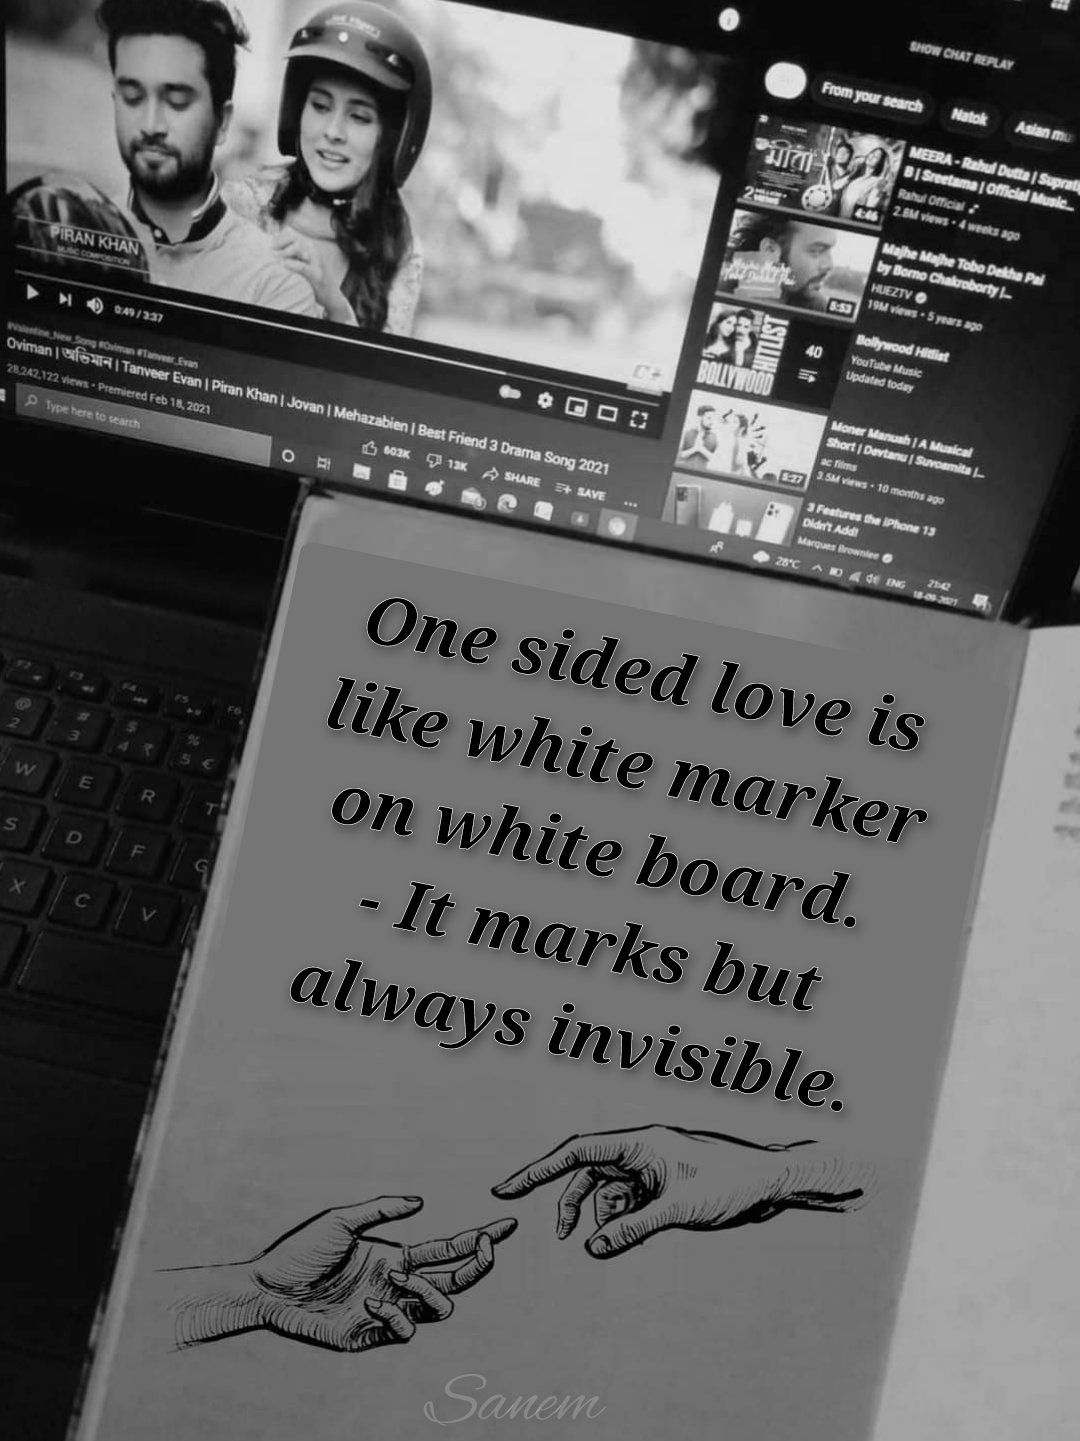 SHOW CHAT REPLAY
From your search
Natok
Asian
PIRAN KHAN
MUSIC COMPOSITION
0:49 / 3:37
#Valentine_New_Song #Oviman #Tanveer_Evan
Oviman | অভিমান | Tanveer Evan | Piran Khan | Jovan | Mehazabien | Best Friend 3 Drama Song 2021
28,242,122 views • Premiered Feb 18, 2021
603K
13K
SHARE
SAVE
...
মীরা
4:46
MEERA - Rahul Dutta | Suprati
B | Sreetama | Official Music...
Rahul Official
2.8M views • 4 weeks ago
5:53
Majhe Majhe Tobo Dekha Pai
by Borno Chakroborty |...
HUEZTV
19M views • 5 years ago
BOLLYWOOD
HITLIST
40
Bollywood Hitlist
YouTube Music
Updated today
5:27
Moner Manush | A Musical
Short | Devtanu | Suvosmita |...
ac films
3.5M views • 10 months ago
3 Features the iPhone 13
Didn't Add!
Marques Brownlee
Type here to search
28°C
ENG
21:42
18-09-2021
F2
F3
F4
F5
F6
@
2
#
3
$
4 ₹
%
5 €
W
E
R
T
S
D
F
G
X
C
V
One sided love is
like white marker
on white board.
- It marks but
always invisible.
Sanem